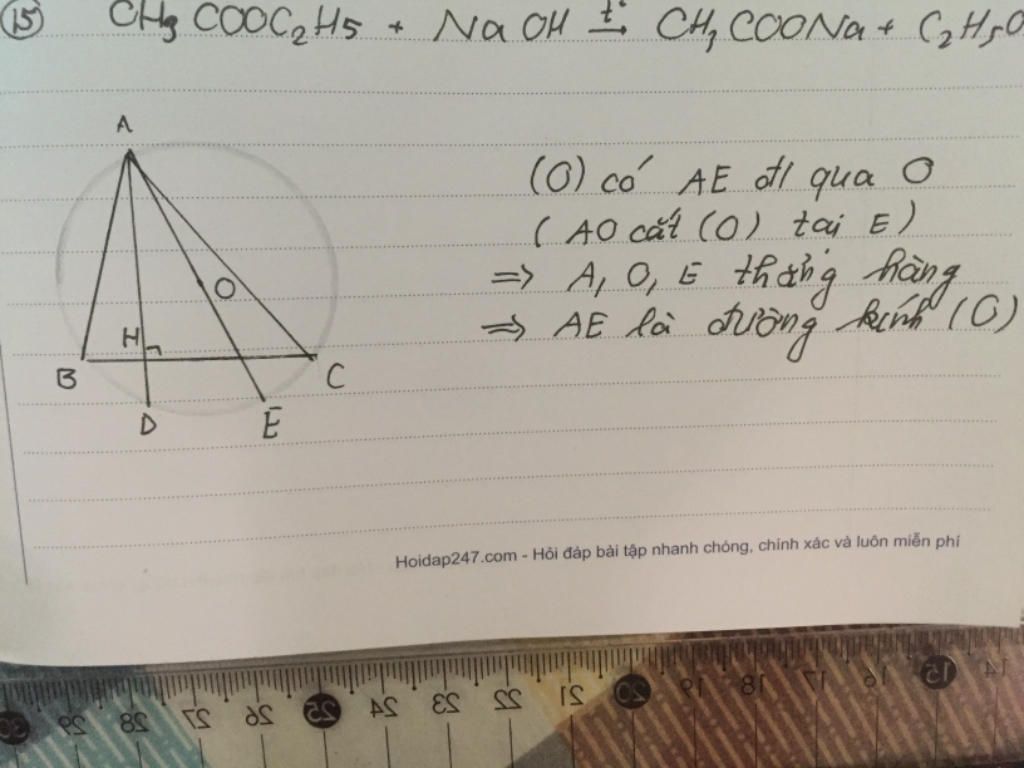 15 CH3 COOC2H5 + NaOH t° → CH3 COONa + C2H5O
A
(O) có AE đl qua O
( AO cắt (O) tại E )
O
=> A, O, E thẳng hàng
=> AE là đường kính (O)
H
B
C
D
E
Hoidap247.com - Hỏi đáp bài tập nhanh chóng, chính xác và luôn miễn phí
30 29 28 27 26 25 24 23 22 21 20 19 18 17 16 15 14